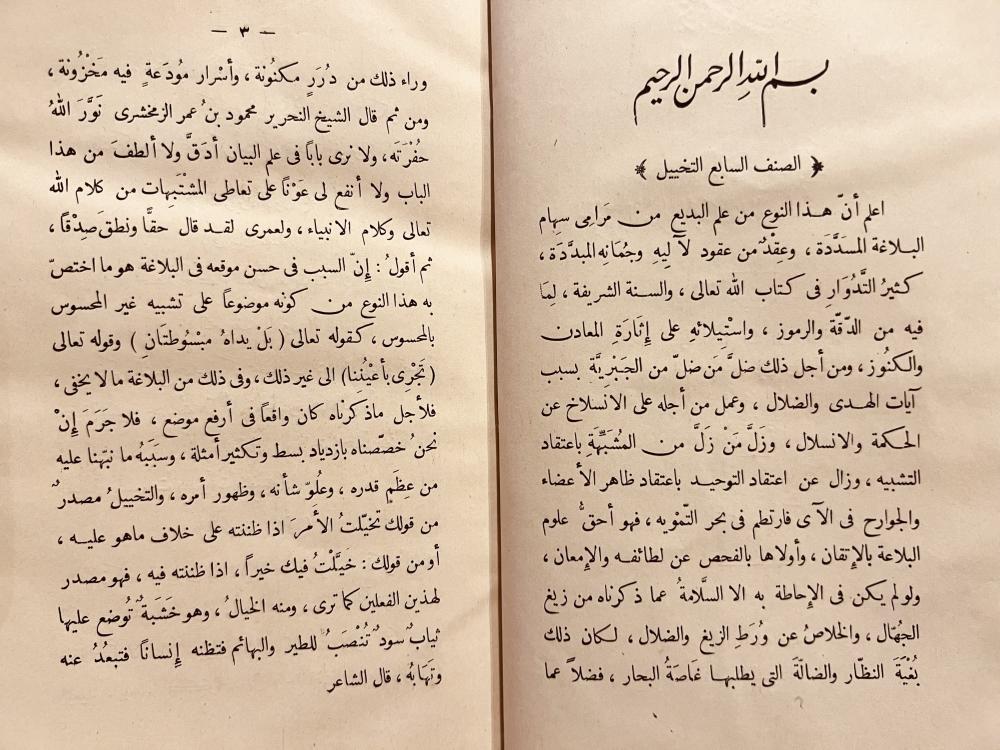 بسم الله الرحمن الرحيم
﴿ الصنف السابع التخييل ﴾
اعلم أنّ هذا النوع من علم البديع من مَرامِى سِهام
البلاغة المسَدَّدَة ، وعِقْدٌ من عقود لآليهِ وجُمَانِه المبدَّدَة ،
كثيرُ التَّدْوَارِ فى كتاب الله تعالى ، والسنة الشريفة ، لِمَا
فيه من الدّقّة والرموز ، واسْتِيلائِهِ على إِثَارَةِ المعادن
والكنُوز ، ومن أجل ذلك ضلَّ مَن ضلّ من الجَبْرِيَّةِ بسبب
آيات الهدى والضلال ، وعمل من أجله على الانسلاخ عن
الحكمة والانسلال ، وزَلَّ مَنْ زَلَّ من المُشبِّهَةِ باعتقاد
التشبيه ، وزال عن اعتقاد التوحيد باعتقاد ظاهر الأعضاء
والجوارح فى الآى فارتطم فى بحر التّمْويه ، فهو أحقُّ علوم
البلاغة بالإتقان ، وأولاها بالفحص عن لطائفه والإِمعان ،
ولو لم يكن فى الإِحاطة به الا السَّلامةُ عما ذكرناه من زيغ
الجُهّال ، والخلاصُ عن وُرَطِ الزيغ والضلال ، لكان ذلك
بُغْيَةَ النظّار والضالّةَ التى يطلبها غَاصَةُ البحار ، فضلاً عما
— ٣ —
وراء ذلك من دُرَرٍ مكنُونة ، وأسْرار مُودَعةٍ فيه مَخْزُونة ،
ومن ثم قال الشيخ النحرير محمود بنُ عمر الزمخشرى نَوَّرَ اللهُ
حُفْرَتَه ، ولا نرى باباً فى علم البيان أدَقَّ ولا ألطفَ من هذا
الباب ولا أنفع لى عَوْناً على تعاطى المشْتَبِهات من كلام الله
تعالى وكلام الانبياء ، ولعمرى لقد قال حقًّا ونطق صِدْقاً ،
ثم أقولُ : إِنّ السبب فى حسن موقعه فى البلاغة هو ما اختصّ
به هذا النوع من كونه موضوعاً على تشبيه غير المحسوس
بالمحسوس ، كقوله تعالى ( بَلْ يداهُ مبْسُوطتَانِ ) وقوله تعالى
( تَجْرِى بأعْيُننا) الى غير ذلك ، وفى ذلك من البلاغة ما لا يخفى ،
فلأجل ماذكرناه كان واقعاً فى أرفع موضع ، فلا جَرَمَ إِنْ
نحنُ خصّصناه بازدياد بسط وتكثير أمثلة ، وسَبَبُه ما نبّهنا عليه
من عِظَمِ قدره ، وعلُوّ شأنه ، وظهور أمره ، والتخييلُ مصدرٌ
من قولك تخيّلتُ الأمرَ اذا ظننته على خلاف ماهو عليه ،
أو من قولك : خيَّلْتُ فيك خيراً ، اذا ظننته فيه ، فهو مصدر
لهذين الفعلين كما ترى ، ومنه الخيالُ ، وهو خَشَبَةٌ تُوضع عليها
ثيابٌ سودٌ تُنْصَبُ للطير والبهائم فتظنه إِنساناً فتبعُدُ عنه
وتَهَابُه ، قال الشاعر